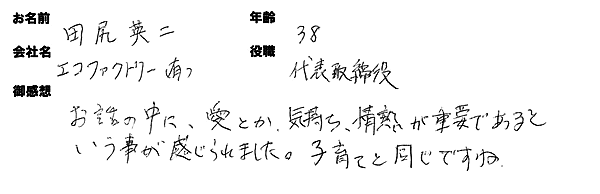 お名前 田尻英二 年齢 38
会社名 エコファクトリー(有) 役職 代表取締役
御感想
お話の中に、愛とか、気持ち、情熱が重要であると
いう事が感じられました。子育てと同じですね。